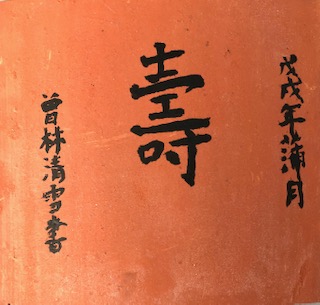 戊戌年蒲月
壽
曾林清雪書